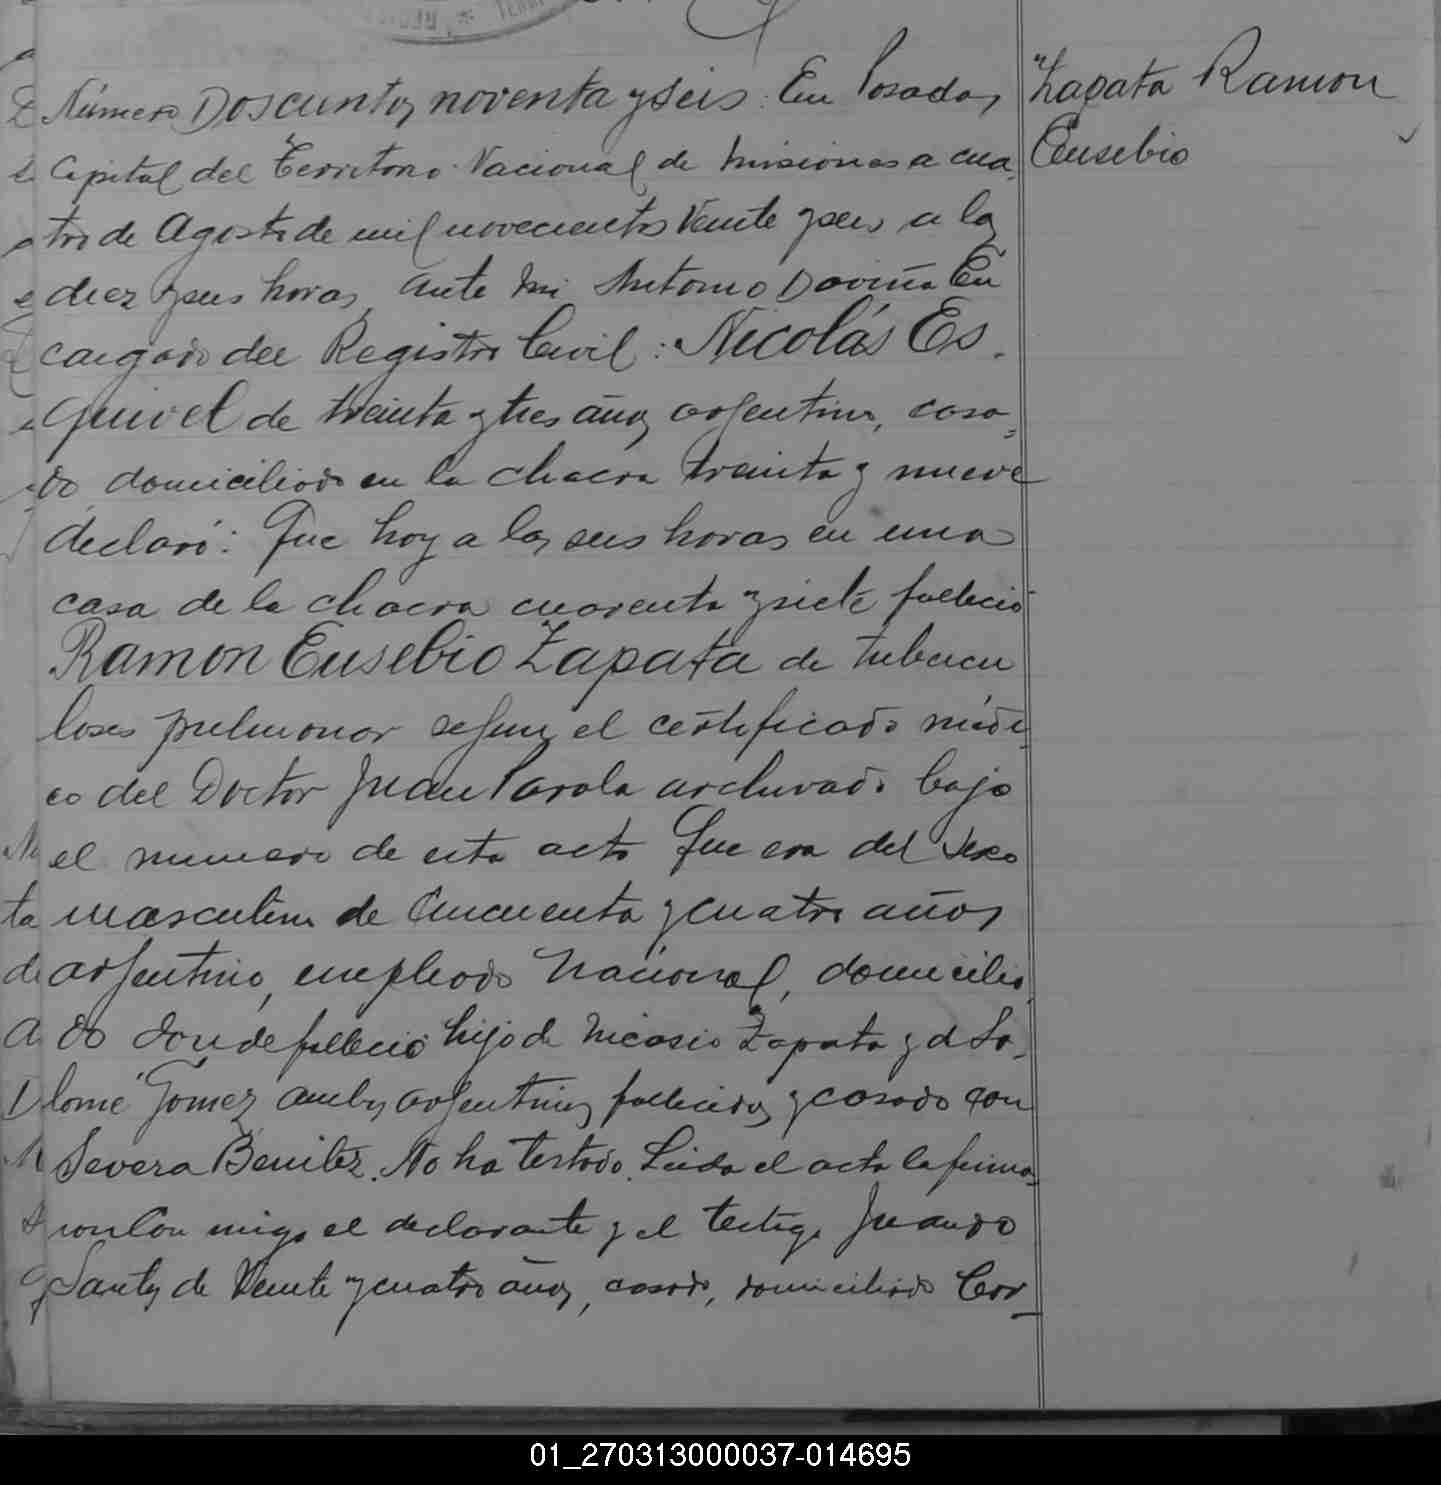 Número Doscientos noventa y seis. En Posadas,
Capital del Territorio Nacional de Misiones a cua
tro de Agosto de mil novecientos veinte y seis a las
diez y seis horas, ante mi Antonio Daviña En
cargado del Registro Civil: Nicolás Es
quivel de treinta y tres años argentino, casa
do domiciliado en la chacra treinta y nueve
declaró: Que hoy a las seis horas en una
casa de la chacra cuarenta y siete falleció
Ramon Eusebio Zapata de tubercu
losis pulmonar segun el certificado médi
co del Doctor Juan Parola archivado bajo
el numero de esta acta Que era del sexo
masculino de cincuenta y cuatro años
argentino, empleado Nacional, domicilia
do donde falleció hijo de Nicasio Zapata y d Sa
lomé Gomez ambos argentinos fallecidos y casado con
Severa Benitez. No ha testado. Leida el acta la firma
ron con migo el declarante y el testigo Juan
Santos de veinte y cuatro años, casado, domiciliado Cor
Zapata Ramon
Eusebio
01_270313000037-014695